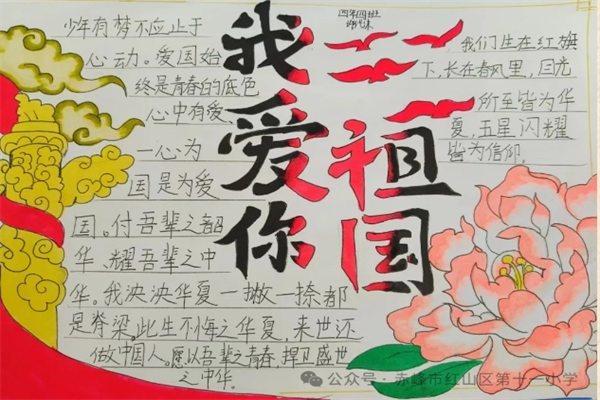 我爱你
祖国
四年四班
少年有梦不应止于
心动。爱国始
终是青春的底色
心中有爱、
一心为
国是为爱
国。付吾辈之韶
华、耀吾辈之中
华。我泱泱华夏一撇一捺都
是脊梁。此生不悔之华夏，来世还
做中国人。愿以吾辈之青春，捍卫盛世
之中华。
我们生在红旗
下，长在春风里，目光
所至皆为华
夏，五星闪耀
皆为信仰。
公众号·赤峰市红山区第十一小学